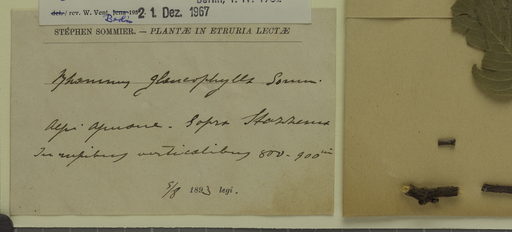 det./rev. W. Vent, Jena 195 21. Dez. 1967
Berlin
STÉPHEN SOMMIER. — PLANTÆ IN ETRURIA LECTÆ
Rhamnus glaucophylla Somm.
Alpi Apuane. Sopra Stazzema
In rupibus verticalibus 800-900 m
5/8 1893 legi.